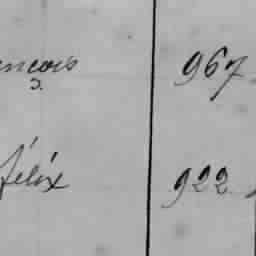 ançois 967
félix 922